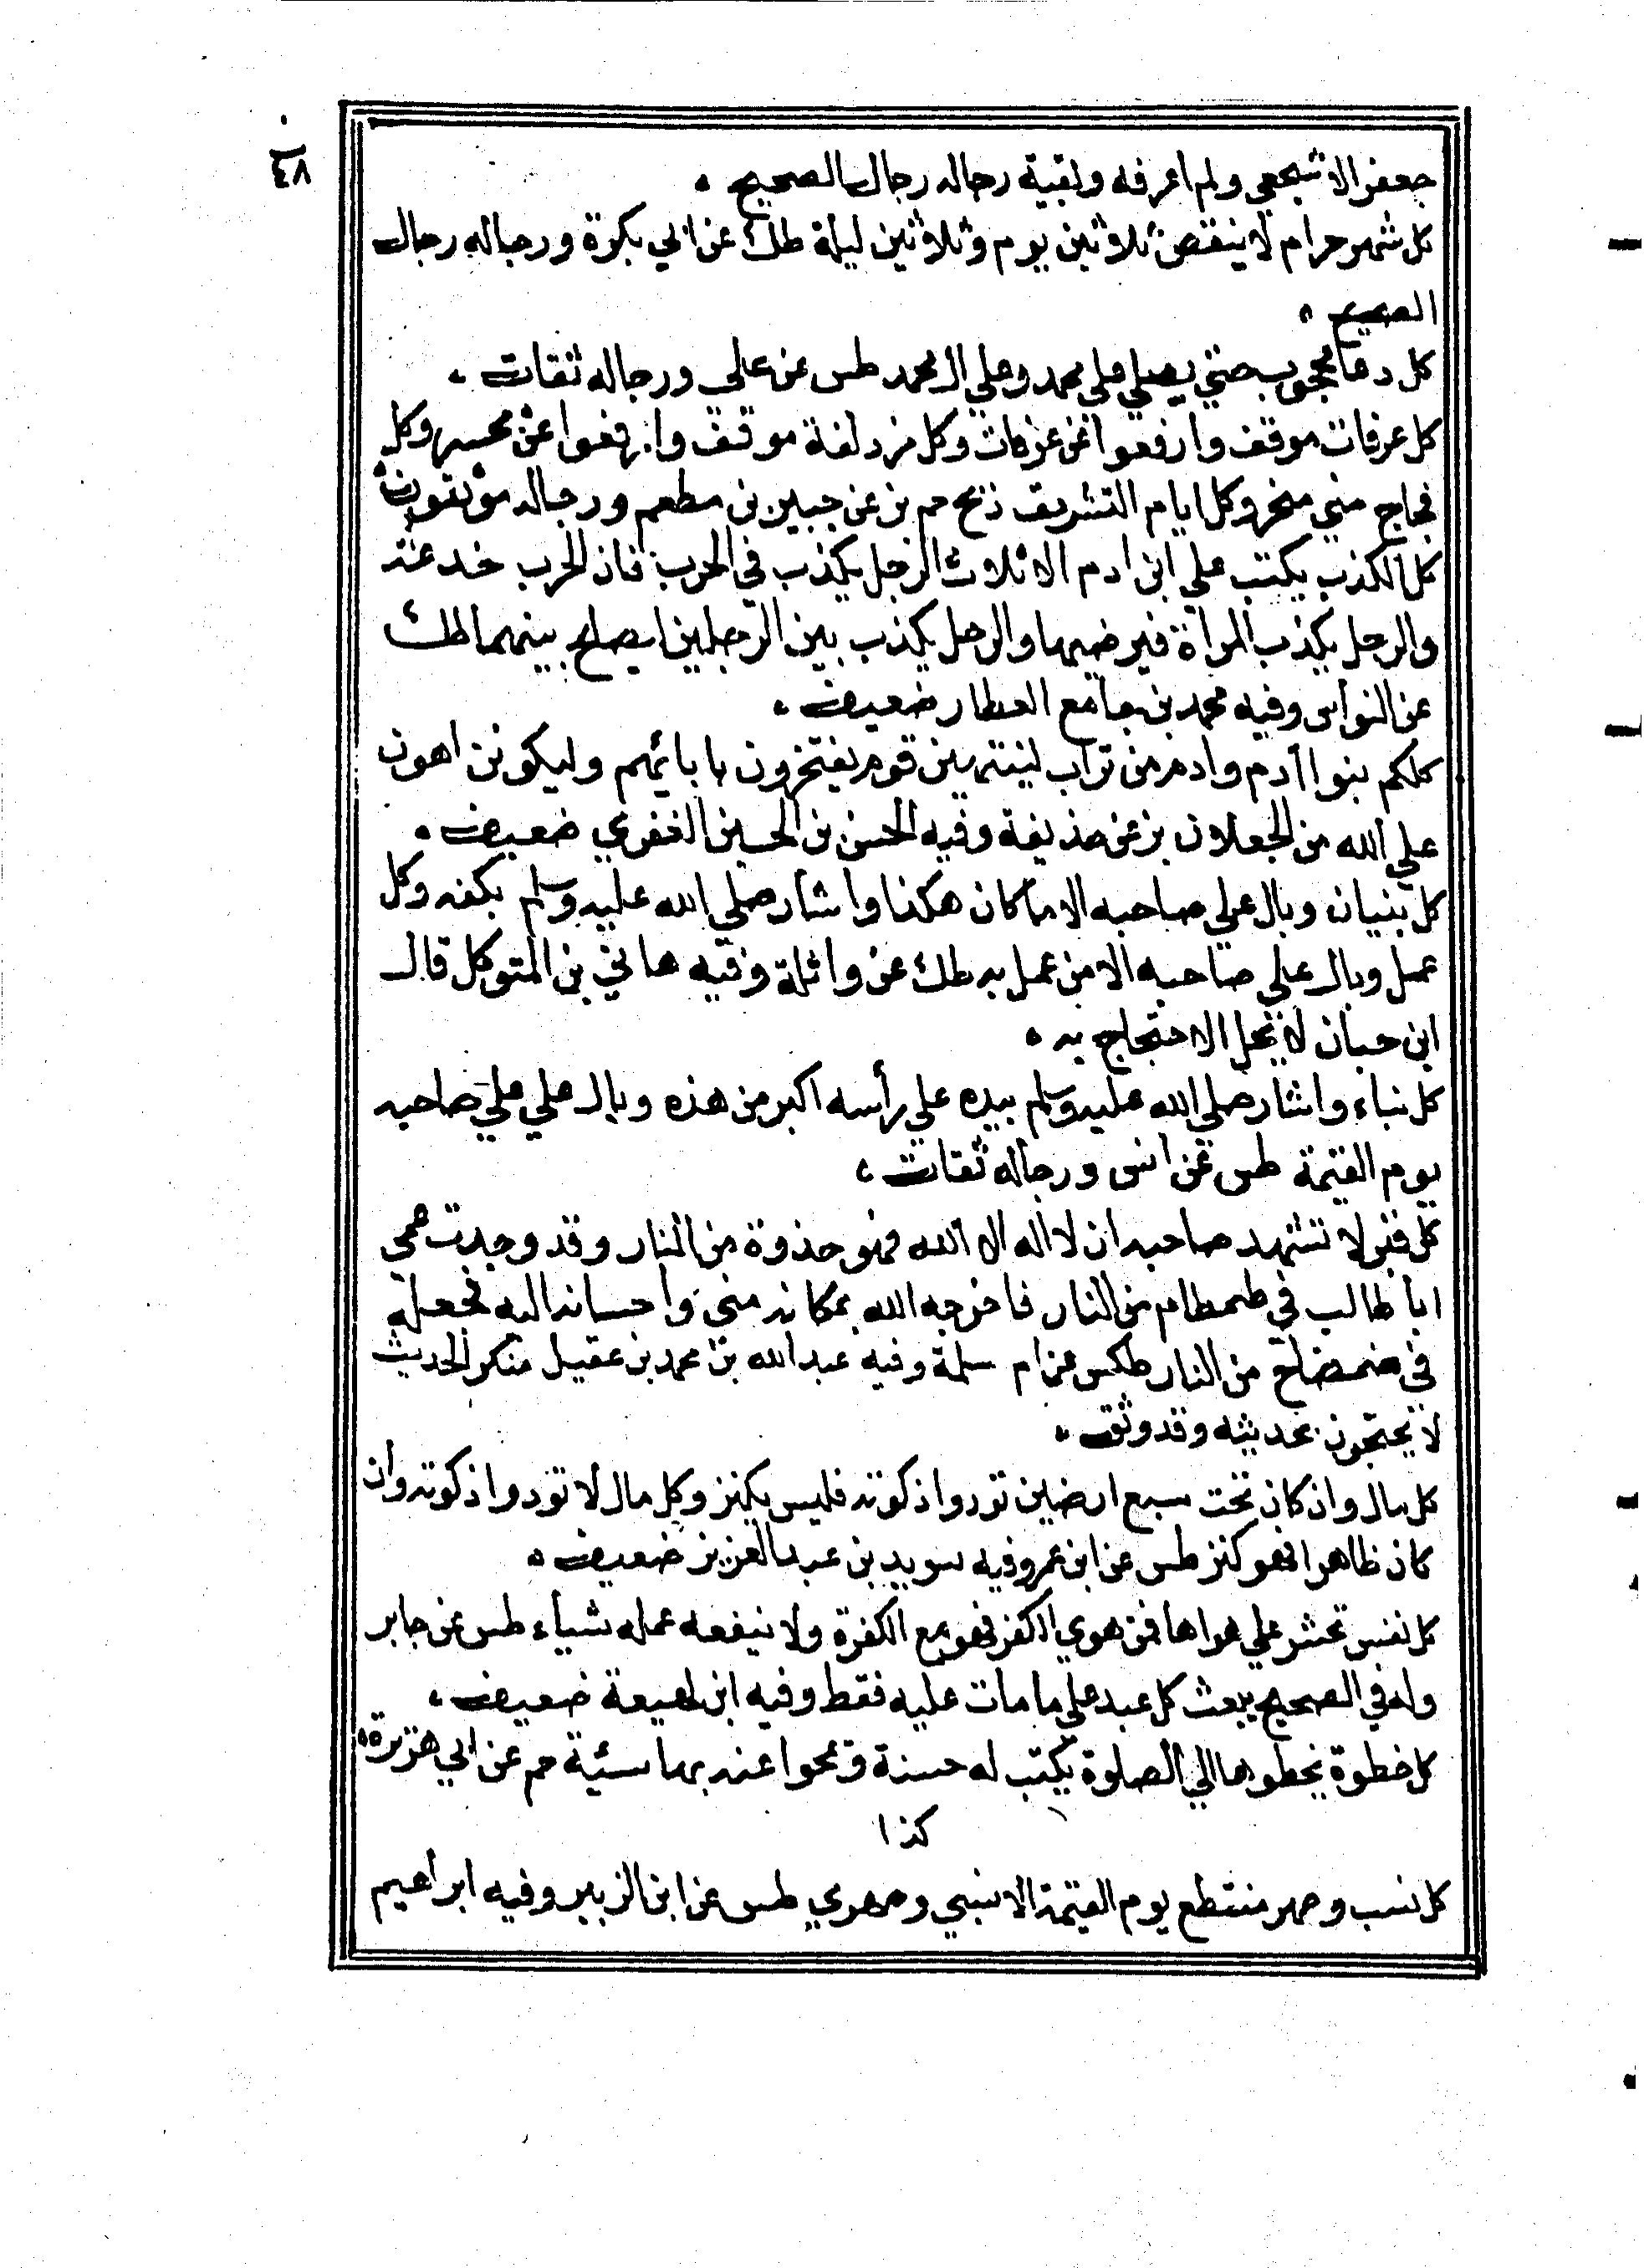 ٧٤
جعفر الاشجعي ولم اعرفه وبقية رجاله رجال الصحيح
كل شهر حرام لا ينقص ثلاثين يوم وثلاثين ليلة طك عن ابي بكرة ورجاله رجال
الصحيح
كل دعا محجوب حتي يصلي علي محمد وعلي ال محمد طس عن علي ورجاله ثقات
كل عرفات موقف وارفعوا عن عرفات وكل مزدلفة موقف وارفعوا عن محسر وكل
فجاج مني منحر وكل ايام التشريق ذبح حم بز عن جبير بن مطعم ورجاله موثقون
كل الكذب يكتب علي ابن ادم الا ثلاث الرجل يكذب في الحرب فان الحرب خدعة
والرجل يكذب المراة فيرضيها والرجل يكذب بين الرجلين ايصلح بينهما طك
عن النواس وفيه محمد بن جامع العطار ضعيف
كلكم بنوا آدم وادم من تراب لينتهين قوم يفتخرون بابائهم وليكونن اهون
علي الله من الجعلان بز عن حذيفة وفيه الحسن بن الحسين الغفري ضعيف
كل بنيان وبال علي صاحبه الا ما كان هكذا واشار صلي الله عليه وسلم بكفه وكل
عمل وبال علي صاحبه الا من عمل به طك عن واثلة وفيه هاني بن المتوكل قال
ابن حبان لا يحل الاحتجاج به
كل بناء واشار صلي الله عليه وسلم بيده علي رأسه اكبر من هذه وبال علي علي صاحبه
يوم القيمة طس عن انس ورجاله ثقات
كل قبر لا تشهد صاحبه ان لا اله الا الله فهو حذوة من النار وقد وجدت عمى
ابا طالب في طمطام من النار فاخرجه الله بمكانه منى واحسانه اليه فجعله
في ضحضاح من النار طكس عن ام سلمة وفيه عبد الله بن محمد بن عقيل منكر الحديث
لا يحتجون بحديثه وقد وثق
كل مال وان كان تحت سبع ارضين تودوا ذكوته فليس بكنز وكل مال لا تودوا ذكوته وان
كان ظاهرا فهو كنز طس عن ابن عمر وفيه سويد بن عبد العزيز ضعيف
كل نفس تحشر علي هواها فمن هوي الكفر فهو مع الكفرة ولا ينفعه عمله شياء طس عن جابر
وله في الصحيح يبعث كل عبد علي ما مات عليه فقط وفيه ابن لهيعة ضعيف
كل خطوة يخطوها الي الصلوة يكتب له حسنة وتمحوا عنه بها سئية حم عن ابي هريرة
كذا
كل نسب وصهر منقطع يوم القيمة الا نسبي وصهري طس عن ابن الزبير وفيه ابراهيم